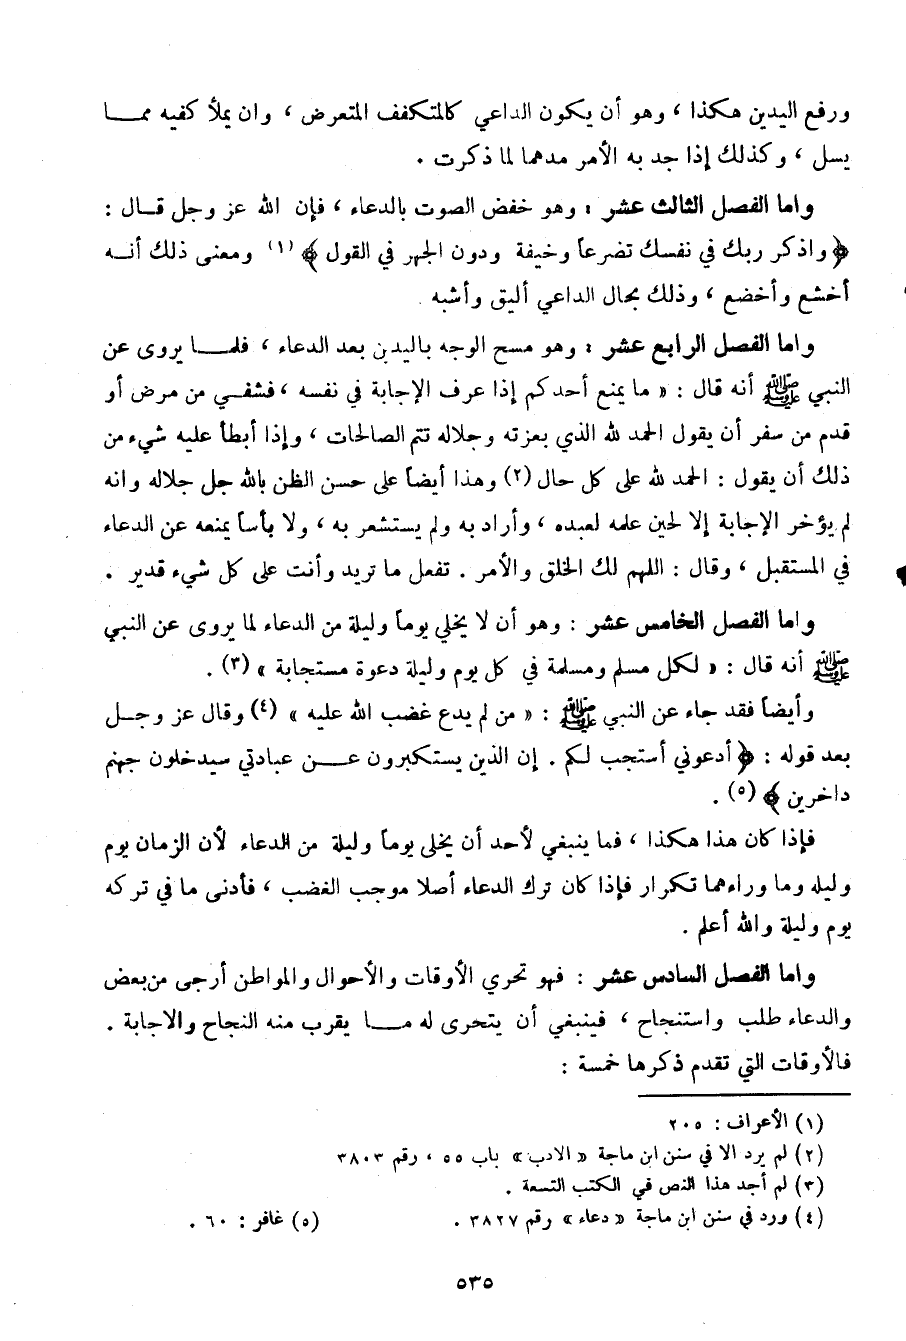 ورفع اليدين هكذا ، وهو أن يكون الداعي كالمتكفف المتعرض ، وان يملأ كفيه ممـا
يسل ، وكذلك إذا جد به الأمر مدهما لما ذكرت .
واما الفصل الثالث عشر : وهو خفض الصوت بالدعاء ، فإن الله عز وجل قـال :
﴿ واذكر ربك في نفسك تضرعاً وخيفة ودون الجهر في القول ﴾ (١) ومعنى ذلك أنـه
أخشع وأخضع ، وذلك بحال الداعي أليق وأشبه .
واما الفصل الرابع عشر : وهو مسح الوجه باليدين بعد الدعاء ، فلمـا يروى عن
النبي ﷺ أنه قال : « ما يمنع أحدكم إذا عرف الإجابة في نفسه ، فشفـي من مرض أو
قدم من سفر أن يقول الحمد لله الذي بعزته وجلاله تتم الصالحات ، وإذا أبطأ عليه شيء من
ذلك أن يقول : الحمد لله على كل حال (٢) وهذا أيضاً على حسن الظن بالله جل جلاله وانه
لم يؤخر الإجابة إلا لحين علمه لعبده ، وأراد به ولم يستشعر به ، ولا بأساً يمنعه عن الدعاء
في المستقبل ، وقال : اللهم لك الخلق والأمر . تفعل ما تريد وأنت على كل شيء قدير .
واما الفصل الخامس عشر : وهو أن لا يخلي يوماً وليلة من الدعاء لما يروى عن النبي
ﷺ أنه قال : « لكل مسلم ومسلمة في كل يوم وليلة دعوة مستجابة » (٣) .
وأيضاً فقد جاء عن النبي ﷺ : « من لم يدع غضب الله عليه » (٤) وقال عز وجـل
بعد قوله : ﴿ أدعوني أستجب لكم . إن الذين يستكبرون عـن عبادتي سيدخلون جهنم
داخرين ﴾ (٥) .
فإذا كان هذا هكذا ، فما ينبغي لأحد أن يخلى يوماً وليلة من الدعاء لأن الزمان يوم
وليله وما وراءهما تكرار فإذا كان ترك الدعاء أصلا موجب الغضب ، فأدنى ما في تركه
يوم وليلة والله أعلم .
واما الفصل السادس عشر : فهو تحري الأوقات والأحوال والمواطن أرجى من بعض
والدعاء طلب واستنجاح ، فينبغي أن يتحرى له مـا يقرب منه النجاح والاجابة .
فالأوقات التي تقدم ذكرها خمسة :
(١) الأعراف : ٢٠٥
(٢) لم يرد الا في سنن ابن ماجة « الادب » باب ٥٥ ، رقم ٣٨٠٣
(٣) لم أجد هذا النص في الكتب التسعة .
(٤) ورد في سنن ابن ماجة « دعاء » رقم ٣٨٢٧ . (٥) غافر : ٦٠ .
٥٣٥